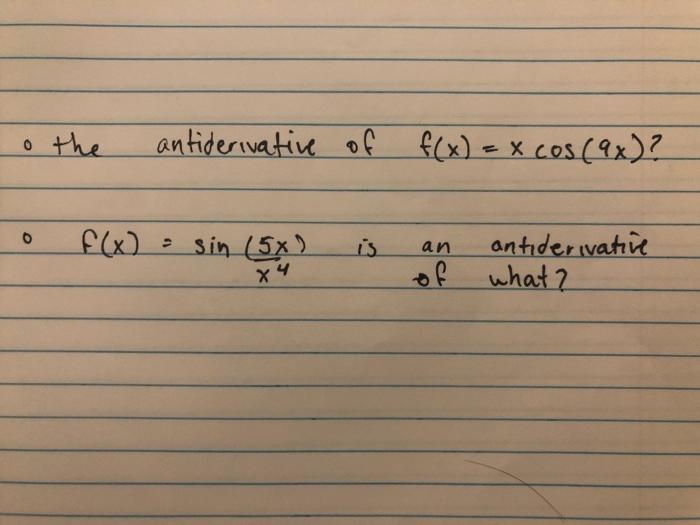 o the antiderivative of f(x) = x cos(9x)?
o f(x) = sin (5x) is an antiderivative
x⁴ of what?